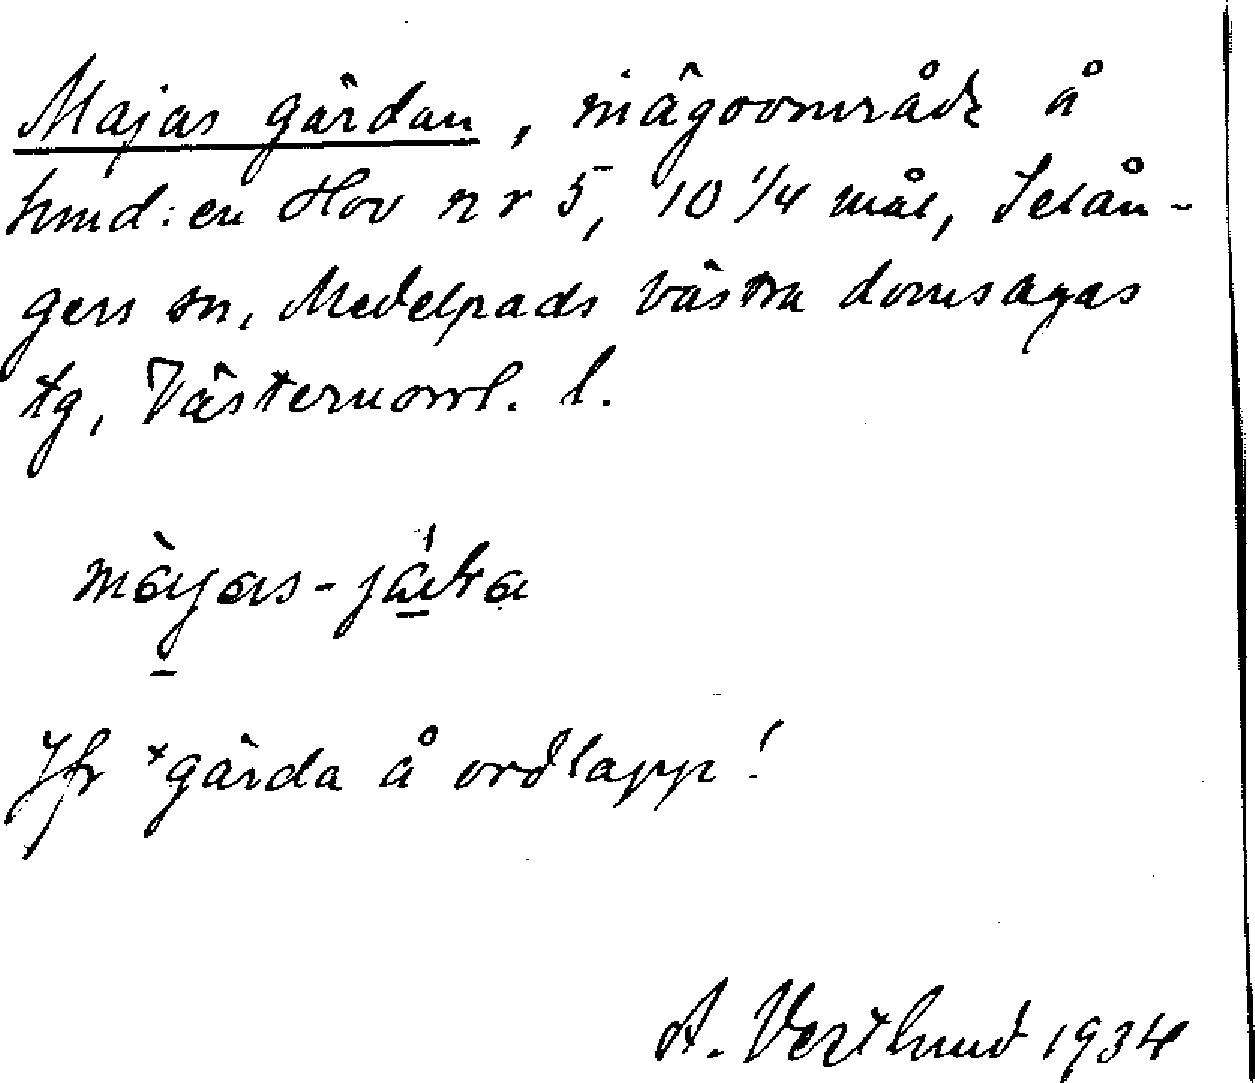 Majas gärdan, inägoområde å
hmd:en Hov nr 5, 10 1/4 mål, Selån-
gers sn, Medelpads västra domsagas
tg, Västernorrl. l.
Jfr *gärda å ordlapp!
A. Vestlund 1934